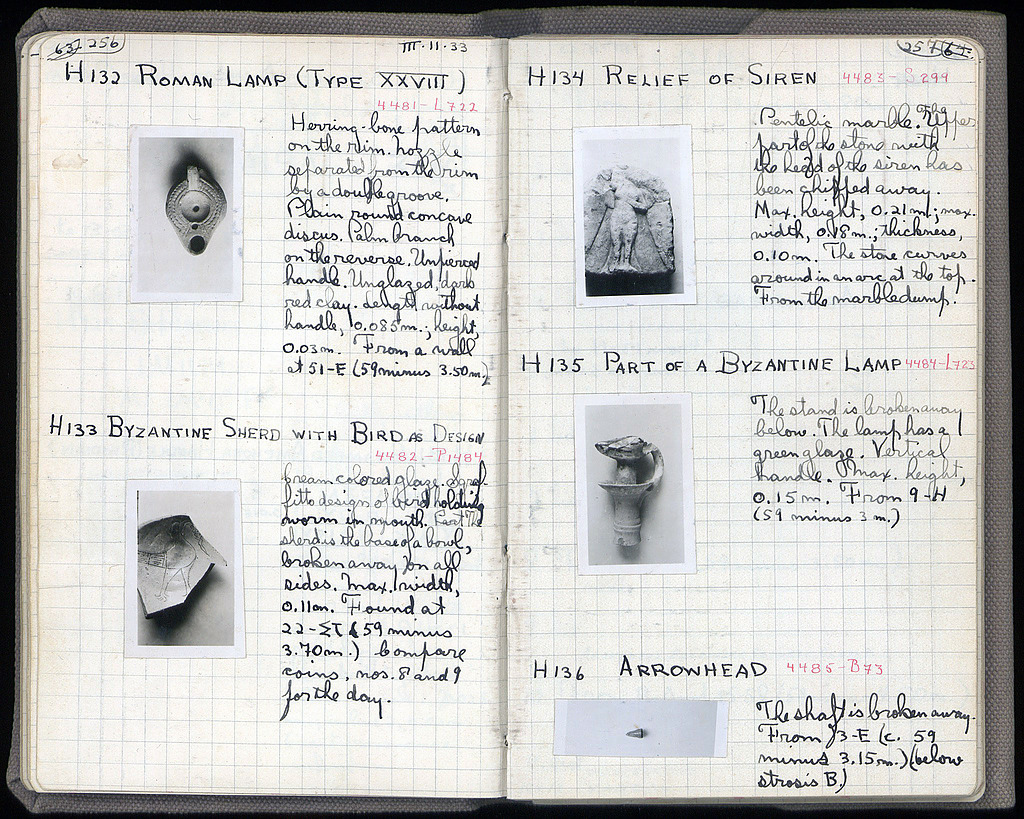 256
III·11·33
H132 ROMAN LAMP (TYPE XXVIII)
4481-L722
Herring-bone pattern
on the rim. Nozzle
separated from the rim
by a double groove.
Plain round concave
discus. Palm branch
on the reverse. Unpierced
handle. Unglazed, dark
red clay. Length without
handle, 0.085m.; height,
0.03m. From a wall
at 51-E (59 minus 3.50m.)
H133 BYZANTINE SHERD WITH BIRD AS DESIGN
4482-P1484
Cream colored glaze. Sgraf-
fitto design of bird holding
worm in mouth. Part The
sherd is the base of a bowl,
broken away on all
sides. Max. width,
0.11m. Found at
22-ΣΤ (59 minus
3.70m.) Compare
coins, nos. 8 and 9
for the day.
257
H134 RELIEF OF SIREN 4483-S299
Pentelic marble. The upper
part of the stone with
the head of the siren has
been chipped away.
Max. height, 0.21m.; max.
width, 0.18m.; thickness,
0.10m. The stone curves
around in an arc at the top.
From the marble dump.
H135 PART OF A BYZANTINE LAMP 4484-L723
The stand is broken away
below. The lamp has a
green glaze. Vertical
handle. Max. height,
0.15m. From 9-H
(59 minus 3m.)
H136 ARROWHEAD 4485-B73
The shaft is broken away.
From 3-E (c. 59
minus 3.15m.) (below
strosis B.)